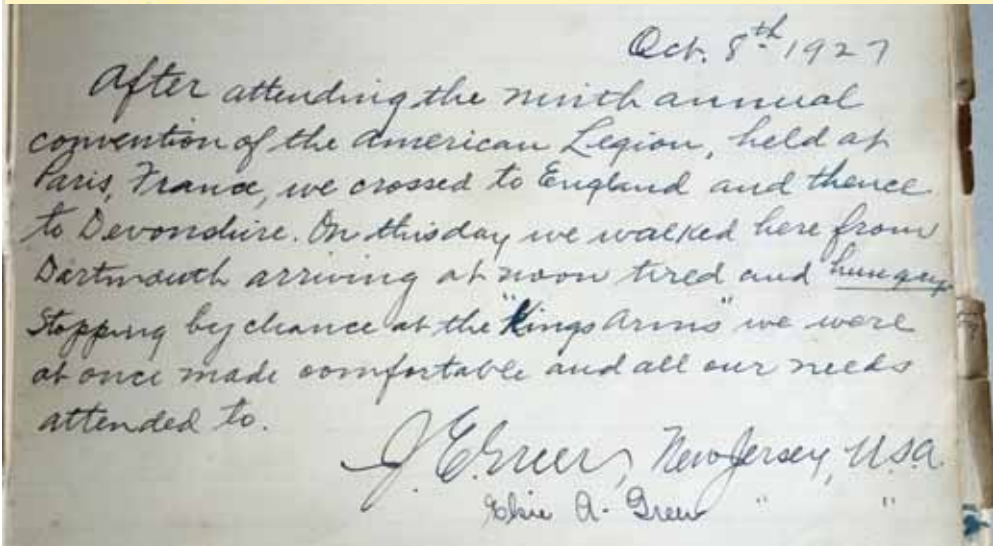 Oct. 8th 1927
After attending the ninth annual
convention of the American Legion, held at
Paris, France, we crossed to England and thence
to Devonshire. On this day we walked here from
Dartmouth arriving at noon tired and hungry.
Stopping by chance at the "Kings Arms" we were
at once made comfortable and all our needs
attended to.
J. E. Greer, New Jersey, U.S.A.
Elsie A. Greer " "